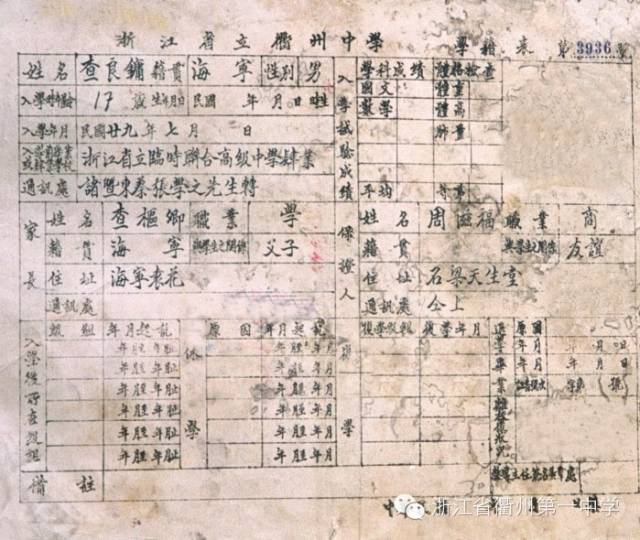 浙江省立衢州中學 學籍表 第3936號
姓名 查良鏞 籍貫 海寧 性別 男 入學試驗成績 學科成績 體格檢查
入學時年齡 17歲 生年月日 民國 年 月 日 國文 體重
數學 體高
入學年月 民國廿九年七月 日 肺量
浙江省立臨時聯合高級中學肄業
通訊處 諸暨東蔡張學文先生轉 平均
家長 姓名 查樞卿 職業 學 保證人 姓名 周 福 職業 商
籍貫 海寧 與學生之關係 父子 籍貫 與學生之關係 友誼
住址 海寧袁花 住址 石梁天生堂
通訊處 通訊處 仝上
入學後所在級組 級組 年月起訖 休學 原因 年月起訖 復學 復學年月 原因
年月起訖 年月起訖 年月
年月起訖 年月起訖 年月
年月起訖 年月起訖
年月起訖 年月起訖
年月起訖 年月起訖
年月起訖 年月起訖
備註
浙江省衢州第一中学